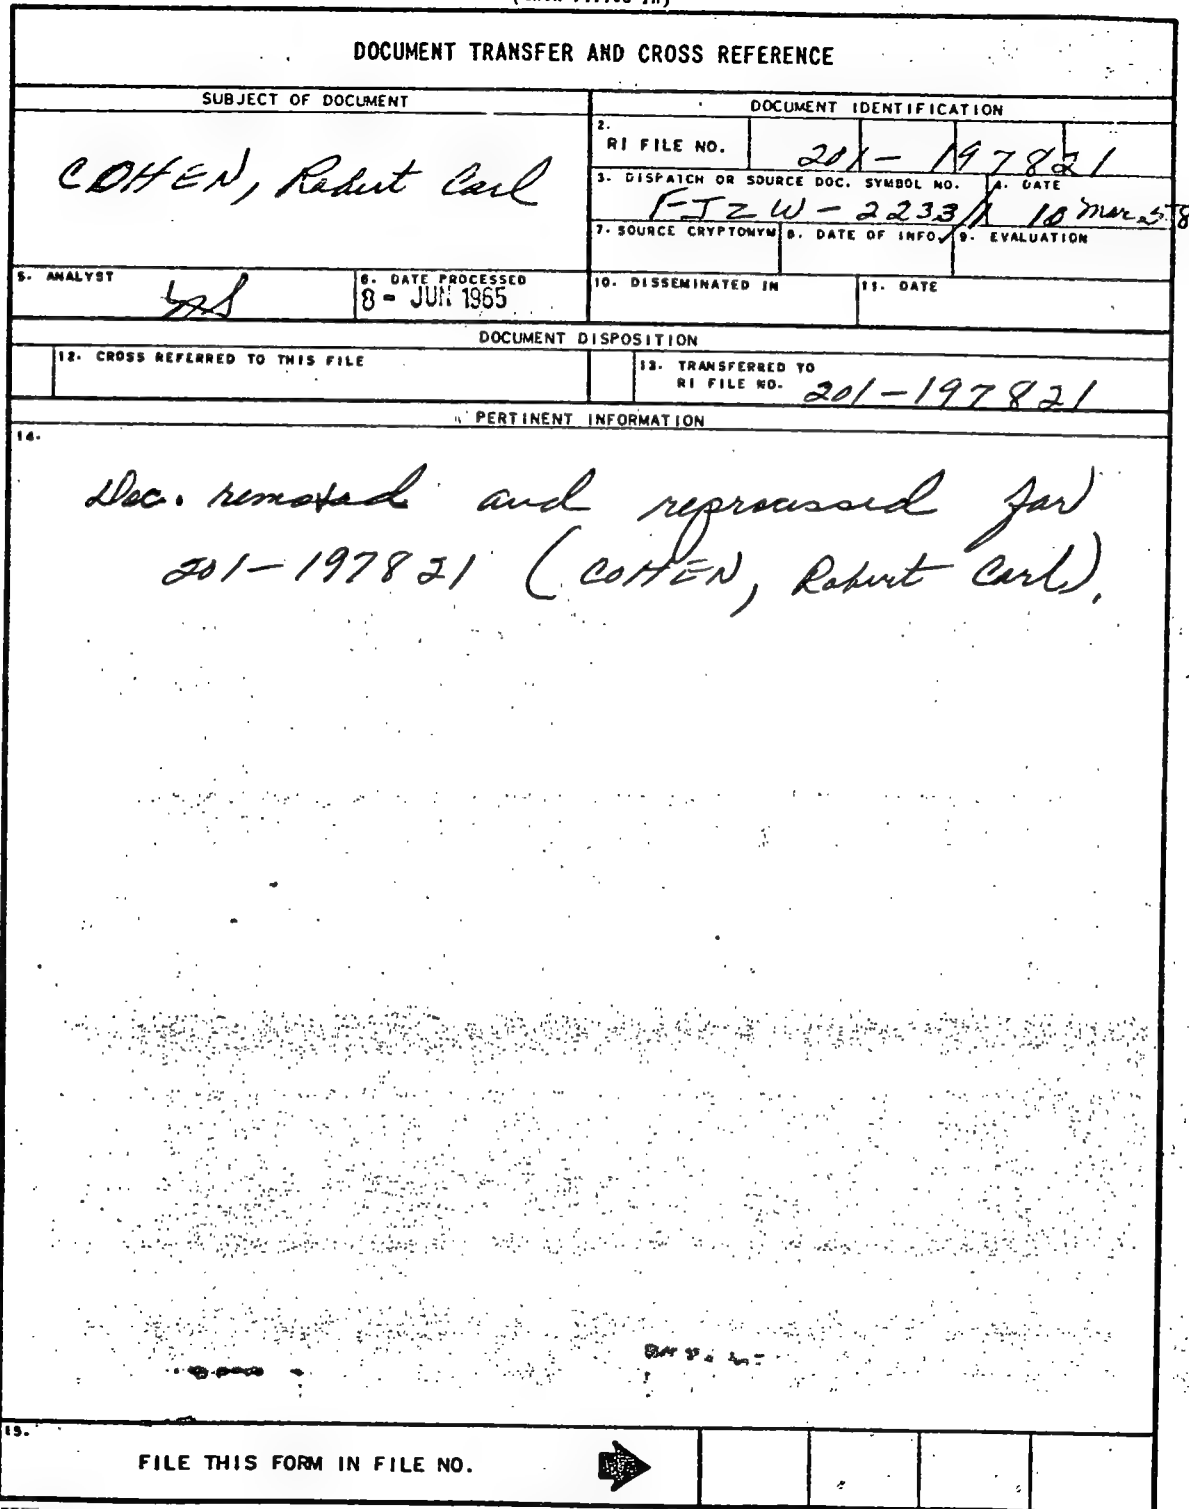 DOCUMENT TRANSFER AND CROSS REFERENCE
SUBJECT OF DOCUMENT
DOCUMENT IDENTIFICATION
COHEN, Robert Carl
2. RI FILE NO. 201-197821
3. DISPATCH OR SOURCE DOC. SYMBOL NO. 4. DATE
FJZW-2233 10 Mar 58
7. SOURCE CRYPTONYM 8. DATE OF INFO. 9. EVALUATION
5. ANALYST 6. DATE PROCESSED
8 - JUN 1965
10. DISSEMINATED IN 11. DATE
DOCUMENT DISPOSITION
12. CROSS REFERRED TO THIS FILE
13. TRANSFERRED TO
RI FILE NO. 201-197821
PERTINENT INFORMATION
14.
Doc. removed and reprocessed for
201-197821 (COHEN, Robert Carl).
15.
FILE THIS FORM IN FILE NO.